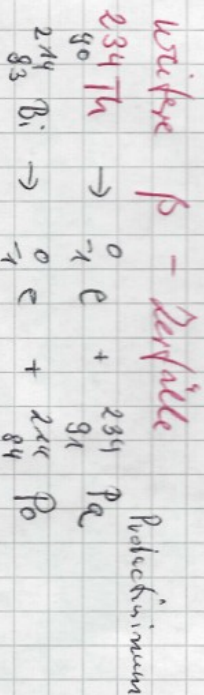 weitere β - Zerfälle
²³⁴₉₀Th → ⁰₋₁e + ²³⁴₉₁Pa Protactinium
²¹⁴₈₃Bi → ⁰₋₁e + ²¹⁴₈₄Po